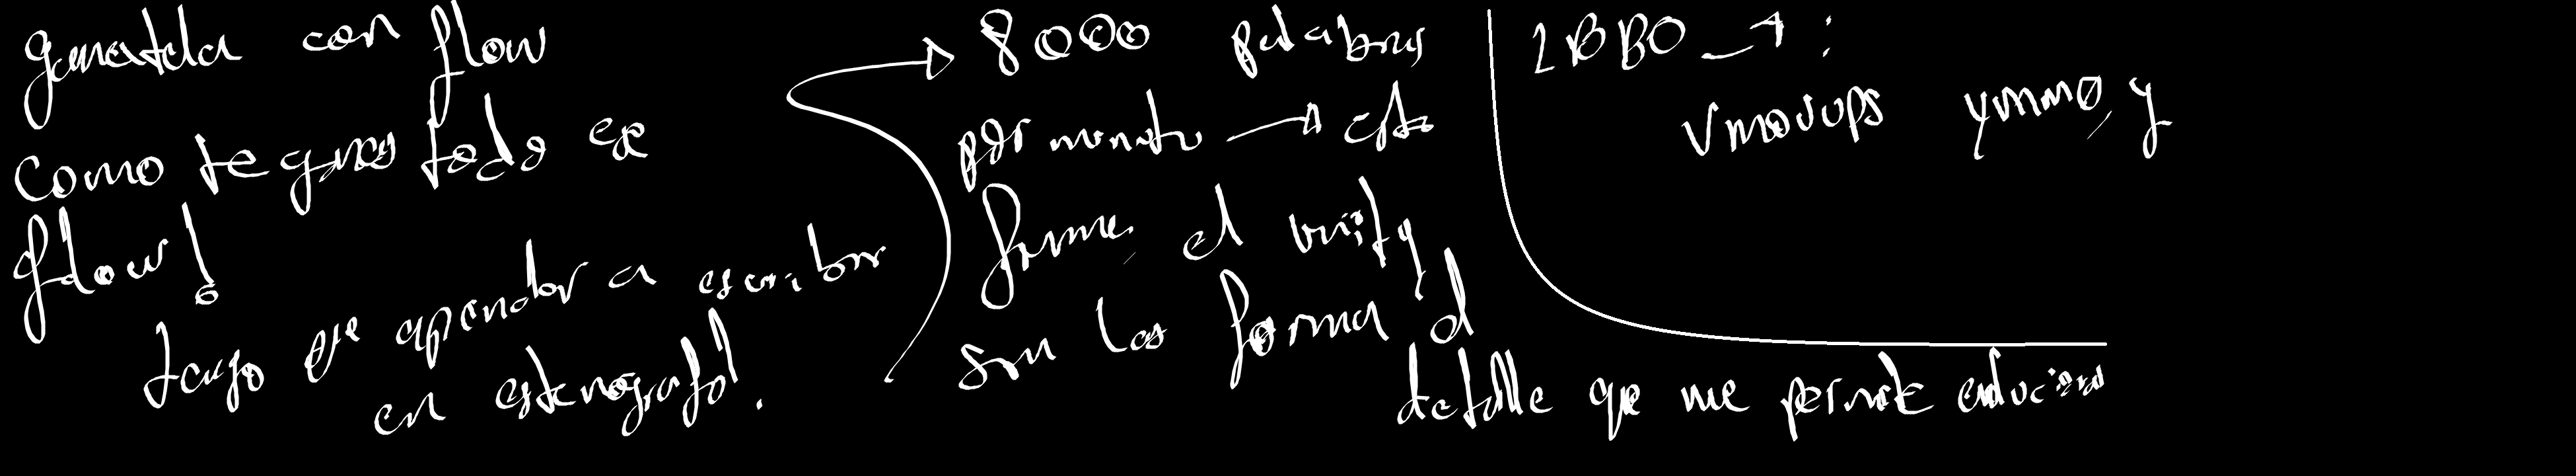 ganatela con flow
como te ganas todo ese
flow!
tengo que aprender a escribir
en estenografo!.
8000 palabras
por minuto → esta
firme, el
son las forma d
detalle que me permite
2BBO → :
vmovups ymm0, y